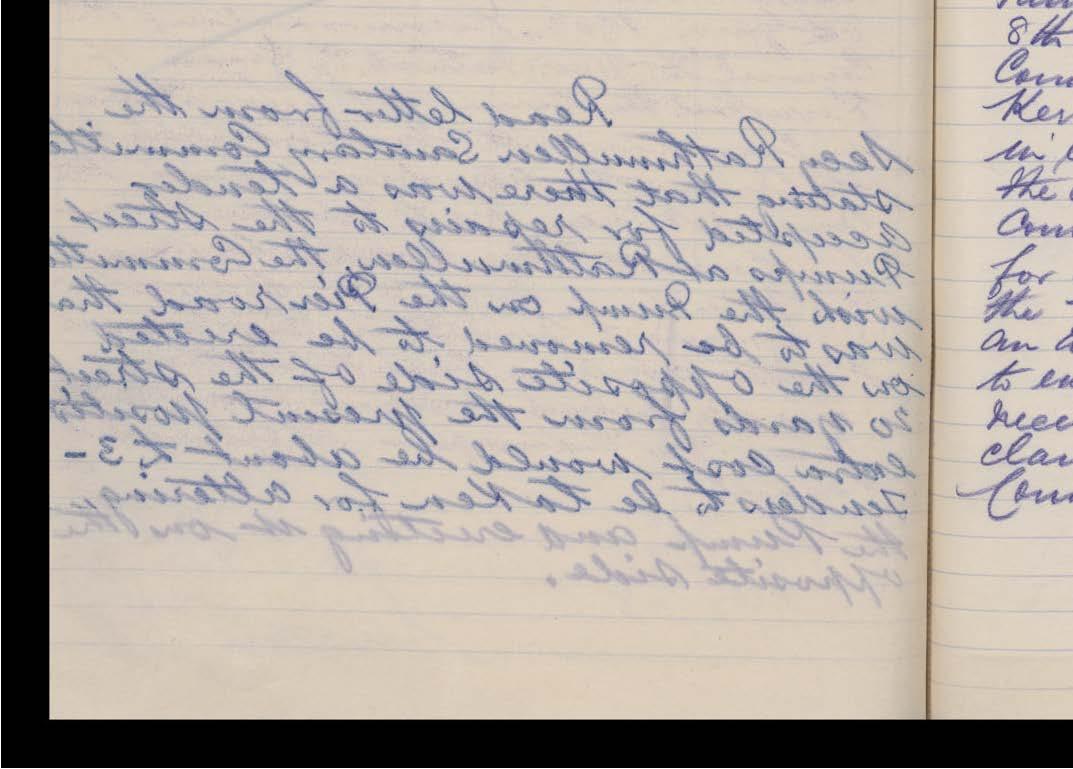 Read letter from the
Secy Rathmullen Sanitary Committe
stating that there was a tender
accepted for repairs to the street
Pumps at Rathmullen, the Committe
wish the Pump on the Pier road tha
was to be removed to be erected
on the opposite side of the street
70 yards from the present positio
extra cost would be about £ 3 -
tenders to be taken for altering
the Pump and erecting it on the
opposite side.
8th
Com
Ker
in
the
Com
for
the
an a
to en
clai
Com